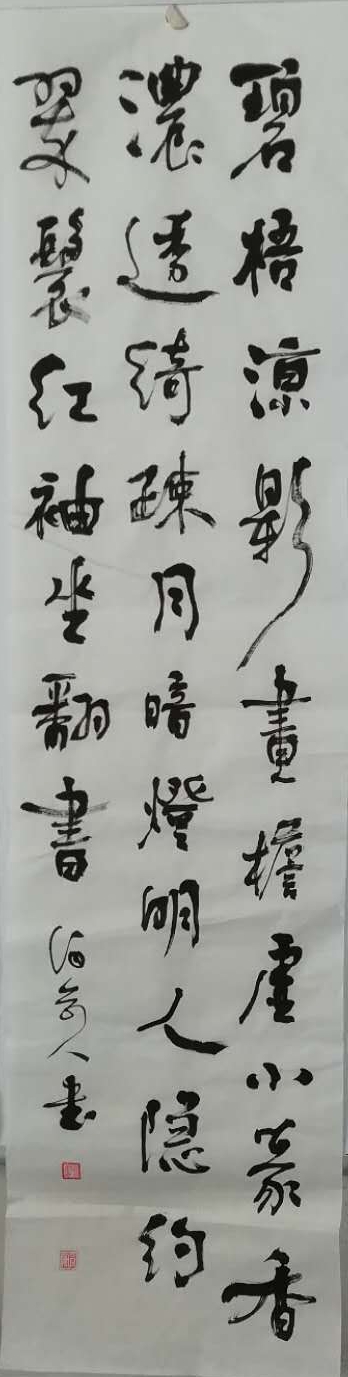 碧梧凉影畫檐虛小篆香
濃透綺疎月暗燈明人隱約
翠鬟紅袖坐翻書 人書